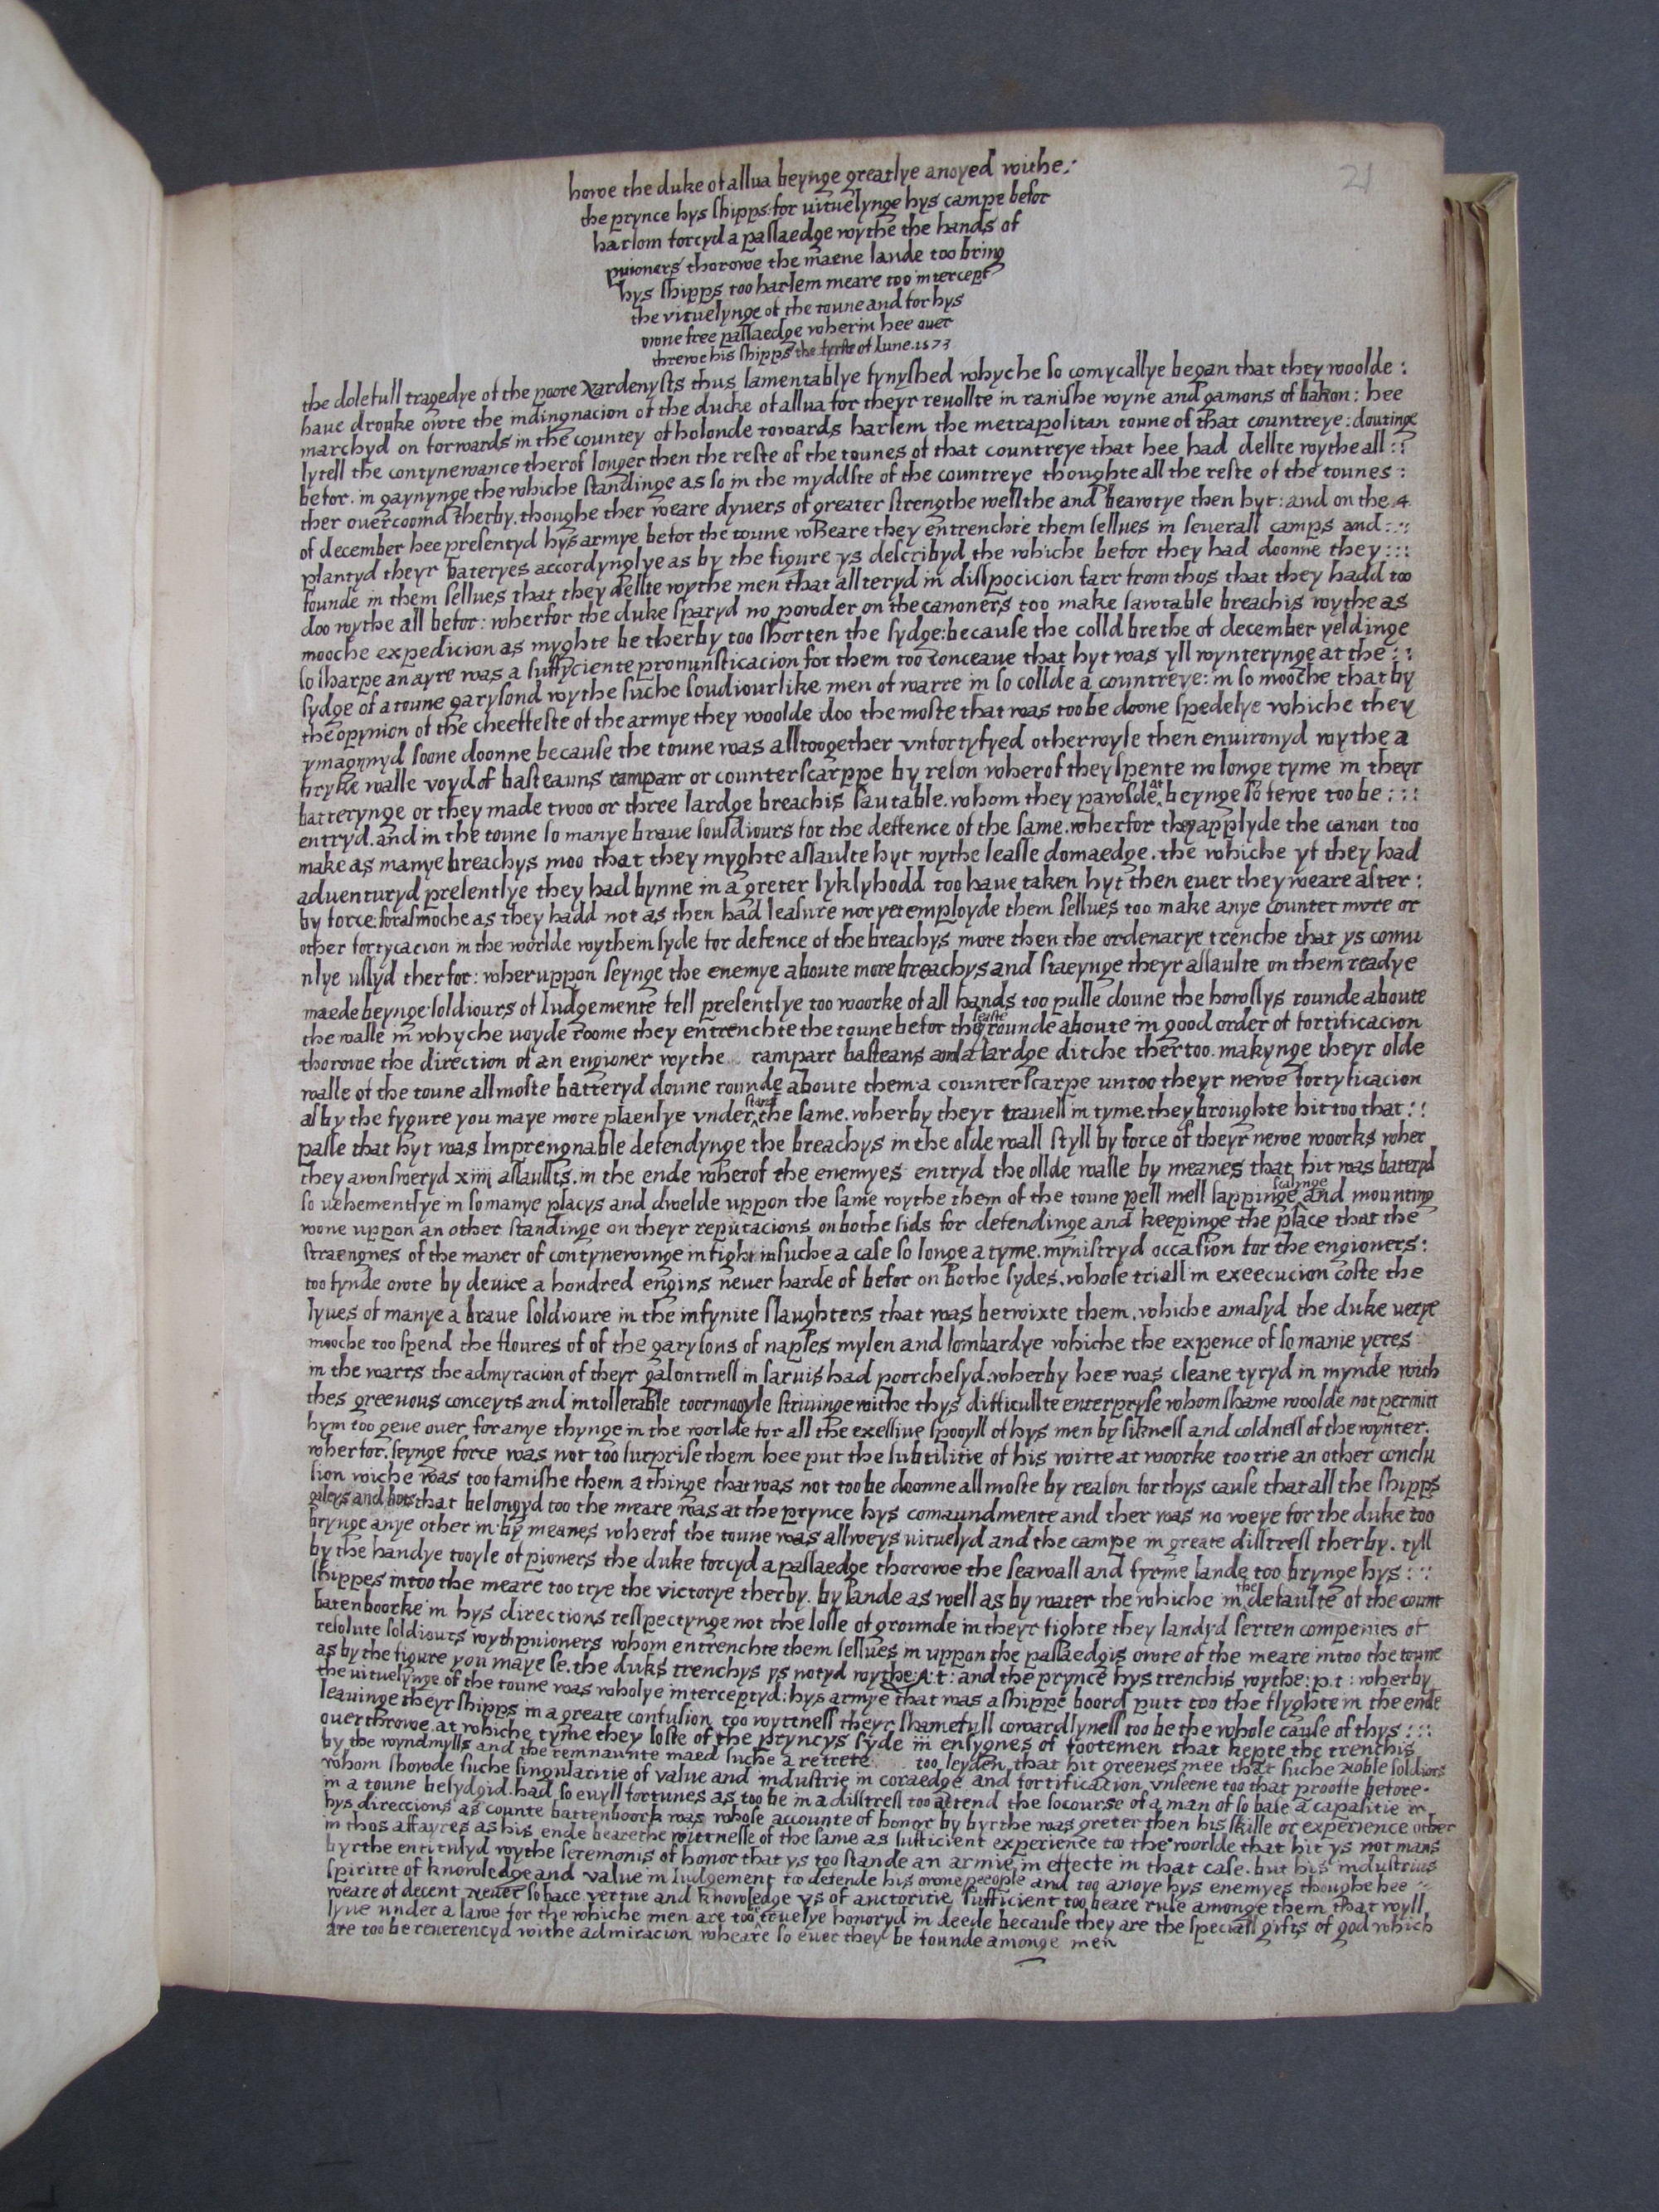 21
howe the duke of allua beynge greatlye anoyed withe:
the prynce hys shipps: for uituelynge hys campe befor
harlom forcyd a passaedge wythe the hands of
puioners thorowe the maene lande too bring
hys shipps too harlem meare too intercept
the vituelynge of the toune and for hys
owne free passaedge wherin hee ouer
threwe his shipps the fyrste of Iune. 1573
the dolefull tragedye of the poore Nardenysts thus lamentablye fynyshed whyche so comycallye began that they woolde :
haue dronke owte the indingnacion of the ducke of allua for theyr reuollte in ranishe wyne and gamons of bakon : hee
marchyd on forwards in the countey of holonde towards harlem the metrapolitan toune of that countreye : doutinge
lytell the contynewance therof longer then the reste of the tounes of that countreye that hee had dellte wythe all : :
befor. in gaynynge the whiche standinge as so in the myddste of the countreye thoughte all the reste of the tounes :
ther ouercoomd therby. thoughe ther weare dyuers of greater strengthe wellthe and beawtye then hyt : and on the 4
of december hee presentyd hys armye befor the toune wheare they entrenchte them sellues in seuerall camps and : ~ :
plantyd theyr bateryes accordynglye as by the figure ys describyd the whiche befor they had doonne they : : :
founde in them sellues that they dellte wythe men that allteryd in disspocicion farr from thos that they hadd too
doo wythe all befor : wherfor the duke sparyd no powder on the canoners too make sawtable breachis wythe as
mooche expedicion as myghte be therby too shorten the sydge : because the colld brethe of december yeldinge
so sharpe an ayre was a suffyciente pronunsticacion for them too conceaue that hyt was yll wynterynge at the : :
sydge of a toune garysond wythe suche soudiourlike men of warre in so collde a countreye : in so mooche that by
the opynion of the cheeffeste of the armye they woolde doo the moste that was too be doone spedelye whiche they
ymagynyd soone doonne because the toune was alltoogether vnfortyfyed otherwyse then enuironyd wythe a
bryke walle voyd of basteauns rampare or counterscarppe by reson wherof they spente no longe tyme in theyr
batterynge or they made twoo or three lardge breachis sautable. whom they pawsde at beynge so fewe too be : : :
entryd. and in the toune so manye braue souldiours for the deffence of the same. wherfor they applyde the canon too
make as manye breachys moo that they myghte assaulte hyt wythe leasse domaedge. the whiche yf they had
adventuryd presentlye they had bynne in a greter lyklyhodd too haue taken hyt then euer they weare after :
by force : forasmoche as they hadd not as then had leasure nor yet employde them sellues too make anye counter mure or
other fortycacion in the worlde wythem syde for defence of the breachys more then the ordenarye trenche that ys comu
nlye ussyd therfor : wheruppon seynge the enemye aboute more breachys and staeynge theyr assaulte on them readye
maede beynge soldiours of Iudgemente fell presentlye too woorke of all hands too pulle doune the howssys rounde aboute
the walle in whyche uoyde roome they entrenchte the toune befor they seaste rounde aboute in good order of fortification
thorowe the direction of an engioner wythe rampart basteans and a lardge ditche thertoo. makynge theyr olde
walle of the toune allmoste batteryd doune rounde aboute them a counterscarpe untoo theyr newe fortyfication
as by the fygure you maye more plaenlye vnder stand the same. wherby theyr trauell in tyme. they broughte hit too that : :
passe that hyt was Imprengnable defendynge the breachys in the olde wall styll by force of theyr newe woorks wher
they awnsweryd xiiij assaullts. in the ende wherof the enemyes entryd the ollde walle by meanes that hit was bateryd
so uehementlye in so manye placys and dwelde uppon the same wythe them of the toune pell mell sappinge scalinge and mounting
wone uppon an other standinge on theyr reputacions on bothe sids for defendinge and keepinge the place that the
straengnes of the maner of contynewinge in fight in suche a case so longe a tyme. mynistryd occasion for the engioners :
too fynde owte by deuice a hondred engins neuer harde of befor on bothe sydes. whose triall in exeecucion coste the
lyues of manye a braue soldioure in the infynite slaughters that was betwixte them. whiche amasyd the duke uerye
mooche too spend the floures of of the garysons of naples mylen and lombardye whiche the expence of so manie yeres
in the warrs the admyracion of theyr galontness in saruis had poorchesyd. wherby hee was cleane tyryd in mynde with
thes greeuous conceyts and intollerable toormooyle striuinge withe thys difficullte enterpryse whom shame woolde not permitt
hym too geue ouer for anye thynge in the woorlde for all the exessiue spooyll of hys men by sikness and coldness of the wynter.
wherfor. seynge force was not too surprise them hee put the subtilitie of his witte at woorke too trie an other conclu
sion wiche was too famishe them a thinge that was not too be doonne allmoste by reason for thys cause that all the shipps
galeys and bots that belongyd too the meare was at the prynce hys comaundmente and ther was no weye for the duke too
brynge anye other in. by meanes wherof the toune was allweys uituelyd and the campe in greate disstress therby. tyll
by the handye tooyle of pioners the duke forcyd a passaedge thorowe the seawall and fyrme lande too brynge hys : ::
shippes intoo the meare too trye the victorye therby. by lande as well as by water the whiche in the defaulte of the count
batenboorke in hys directions resspectynge not the losse of grounde in theyr fighte they landyd serten compenies of
resolute soldiours wyth puioners whom entrenchte them sellues in uppon the passaedgis owte of the meare intoo the toune
as by the figure you maye se. the duks trenchys ys notyd wythe : A : t : and the prynce hys trenchis wythe : p. t : wherby
the uituelynge of the toune was wholye interceptyd : hys armye that was a shippe boord putt too the flyghte in the ende
leauinge theyr shipps in a greate confusion too wyttness theyr shamefull cowardlyness too be the whole cause of thys : : :
ouerthrowe. at whiche tyme they loste of the pryncys syde iii ensygnes of footemen that kepte the trenchis
by the wyndmylls and the remnaunte maed suche a retrete too leyden, that hit greeues mee that suche noble soldiors
whom showde suche singularitie of value and industrie in coraedge and fortification vnseene too that prooffe before.
in a toune besydgid. had so euyll fortunes as too be in a disstress too attend the socourse of a man of so base a capasitie in
hys direccions as counte battenboork was whose accounte of honor by byrthe was greter then his skille or experience other
in thos affayres as his ende bearethe wittnesse of the same as sufficient experience too the woorlde that hit ys not mans
byrthe entitulyd wythe seremonis of honor that ys too stande an armie in effecte in that case. but his industrius
spiritte of knowledge and value in Iudgement too defende his owne peeople and too anoye hys enemyes thoughe hee
weare of decent neuer so bace. vertue and knowledge ys of auctoritie sufficient too beare rule amonge them that wyll
lyue under a lawe for the whiche men are too be truelye honoryd in deede because they are the speciall gifts of god which
are too be reuerencyd withe admiracion wheare so euer they be founde amonge men